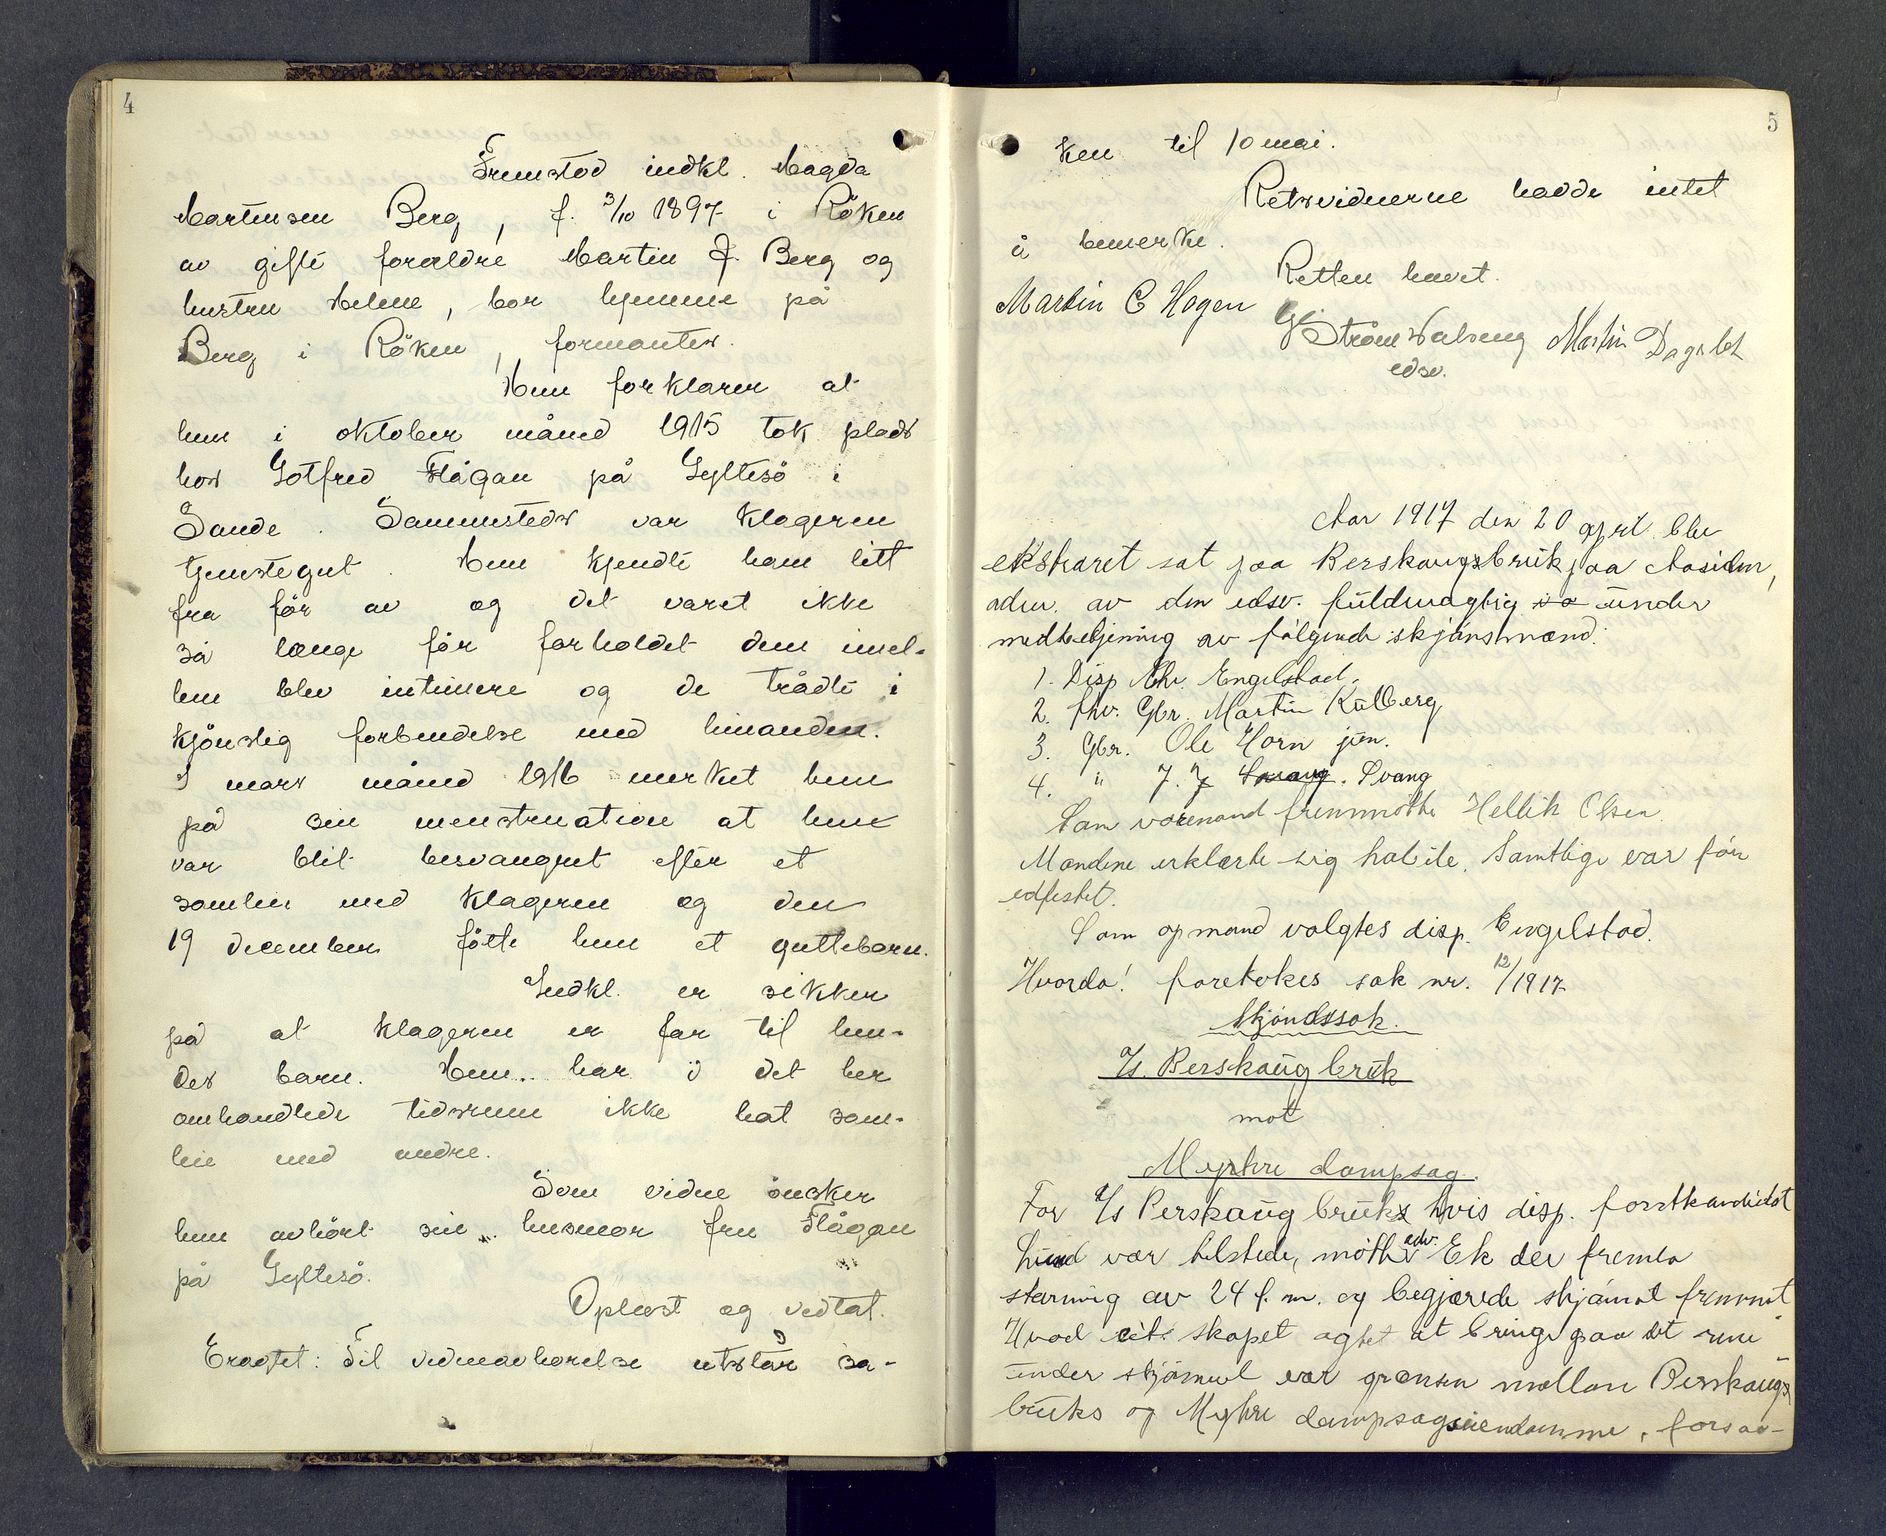 4
Fremstod indkl. Magda
Martinsen Berg, f. 3/10 1897 i Röken
av gifte forældre Martin J. Berg og
hustru Helene, bor hjemme på
Berg i Röken, formantes.
Hun forklarer at
hun i oktober måned 1915 tok plads
hos Gotfred Flågan på Gyltesö i
Sande. Sammesteds var klageren
tjenstegut. Hun kjendte ham litt
fra før av og det varet ikke
så længe før forholdet dem imel-
lem blev intimere og de trådte i
kjönslig forbindelse med hinanden.
I mars måned 1916 merket hun
på sin menstruation at hun
var blit besvangret efter et
samleie med klageren og den
19 december födte hun et guttebarn.
Indkl. er sikker
på at klageren er far til hen-
des barn. Hun har i det her
omhandlede tidsrum ikke hat sam-
leie med andre.
Som vidne önsker
hun avhört sin husmor fru Flågan
på Gyltesö.
Oplæst og vedtat.
Eragtet: Til vidneavhörelse utstår sa-
5
ken til 10 mai.
Retsvidnerne hadde intet
å bemerke.
Retten hævet.
Martin C Hagen
Ström Walseng Martin Dagslet
edsv.
Aar 1917 den 20 april blev
ekstraret sat paa Berskaugsbruk paa Aasiden,
adm. av den edsv. fuldmægtig under
medbetjening av følgende skjønsmænd:
1. Disp Chr. Engelstad.
2. fhv. Gbr. Martin Kulberg
3. Gbr. Ole Horn jun.
4. " J. J. Svang
Som varamand fremmøtte Hellik Olsen.
Mændene erklærte sig habile. Samtlige var før
edfestet.
Som opmand valgtes disp. Engelstad.
Hvorda! foretokes sak nr. 12/1917
Skjønssak.
A/s. Berskaug bruk
mot
Myhre dampsag.
For A/s Berskaug bruk hvis disp. forstkandidat
Lund var tilstede, møtte adv. Ek der fremla
stævning av 24 f. m. og begjærede skjønnet fremmet
Hvad selskapet agtet at bringe paa det rene
under skjønnet var grænsen mellem Berskaugs
bruks og Myhre dampsags eiendomme, forsaa-